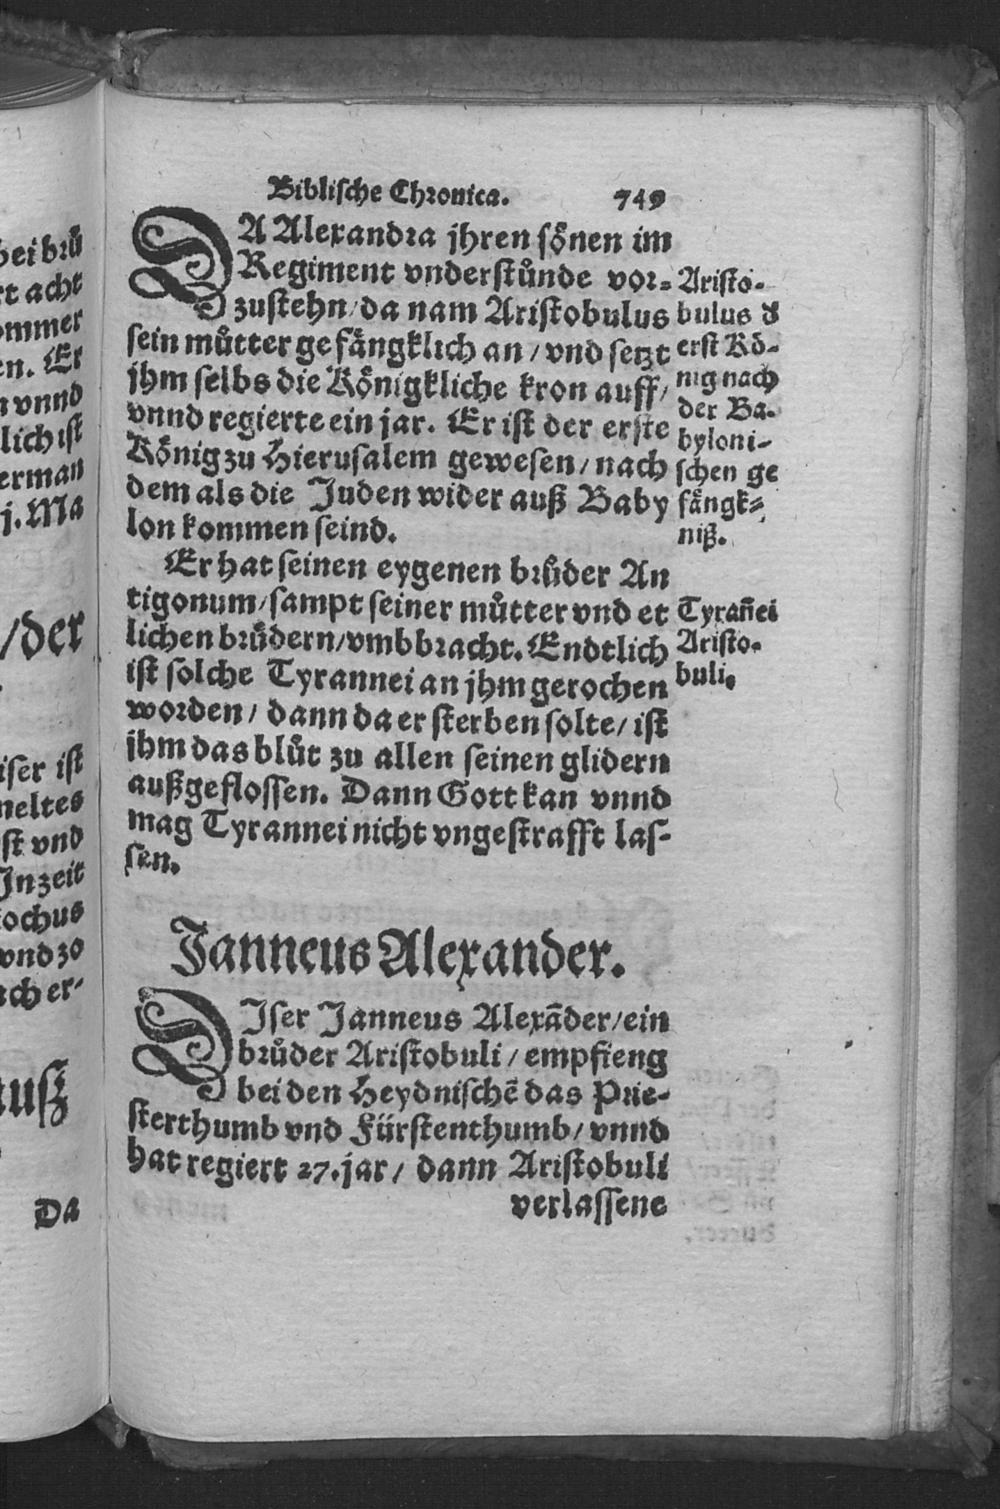 Biblische Chronica. 749
DA Alexandra jhren sönen im
Regiment vnderstůnde vor-
zustehn/da nam Aristobulus
sein můtter gefängklich an/vnd setzt
jhm selbs die Königkliche kron auff/
vnnd regierte ein jar. Er ist der erste
König zu Hierusalem gewesen/nach
dem als die Juden wider auß Baby
lon kommen seind.
Aristo-
bulus d
erst Kö-
nig nach
der Ba-
byloni-
schen ge
fängk-
niß.
Er hat seinen eygenen brůder An
tigonum/sampt seiner můtter vnd et
lichen brůdern/vmbbracht. Endtlich
ist solche Tyrannei an jhm gerochen
worden/dann da er sterben solte/ist
jhm das blůt zu allen seinen glidern
außgeflossen. Dann Gott kan vnnd
mag Tyrannei nicht vngestrafft las-
sen.
Tyrañei
Aristo-
buli.
Janneus Alexander.
DIser Janneus Alexãder/ein
brůder Aristobuli/empfieng
bei den Heydnischẽ das Prie-
sterthumb vnd Fürstenthumb/vnnd
hat regiert 27.jar/dann Aristobuli
verlassene
bei brů
rt acht
ommer
en. Er
n vnnd
lich ist
erman
j. Ma
/der
iser ist
meltes
st vnd
Jn zeit
iochus
vnd zo
ach er-
Da